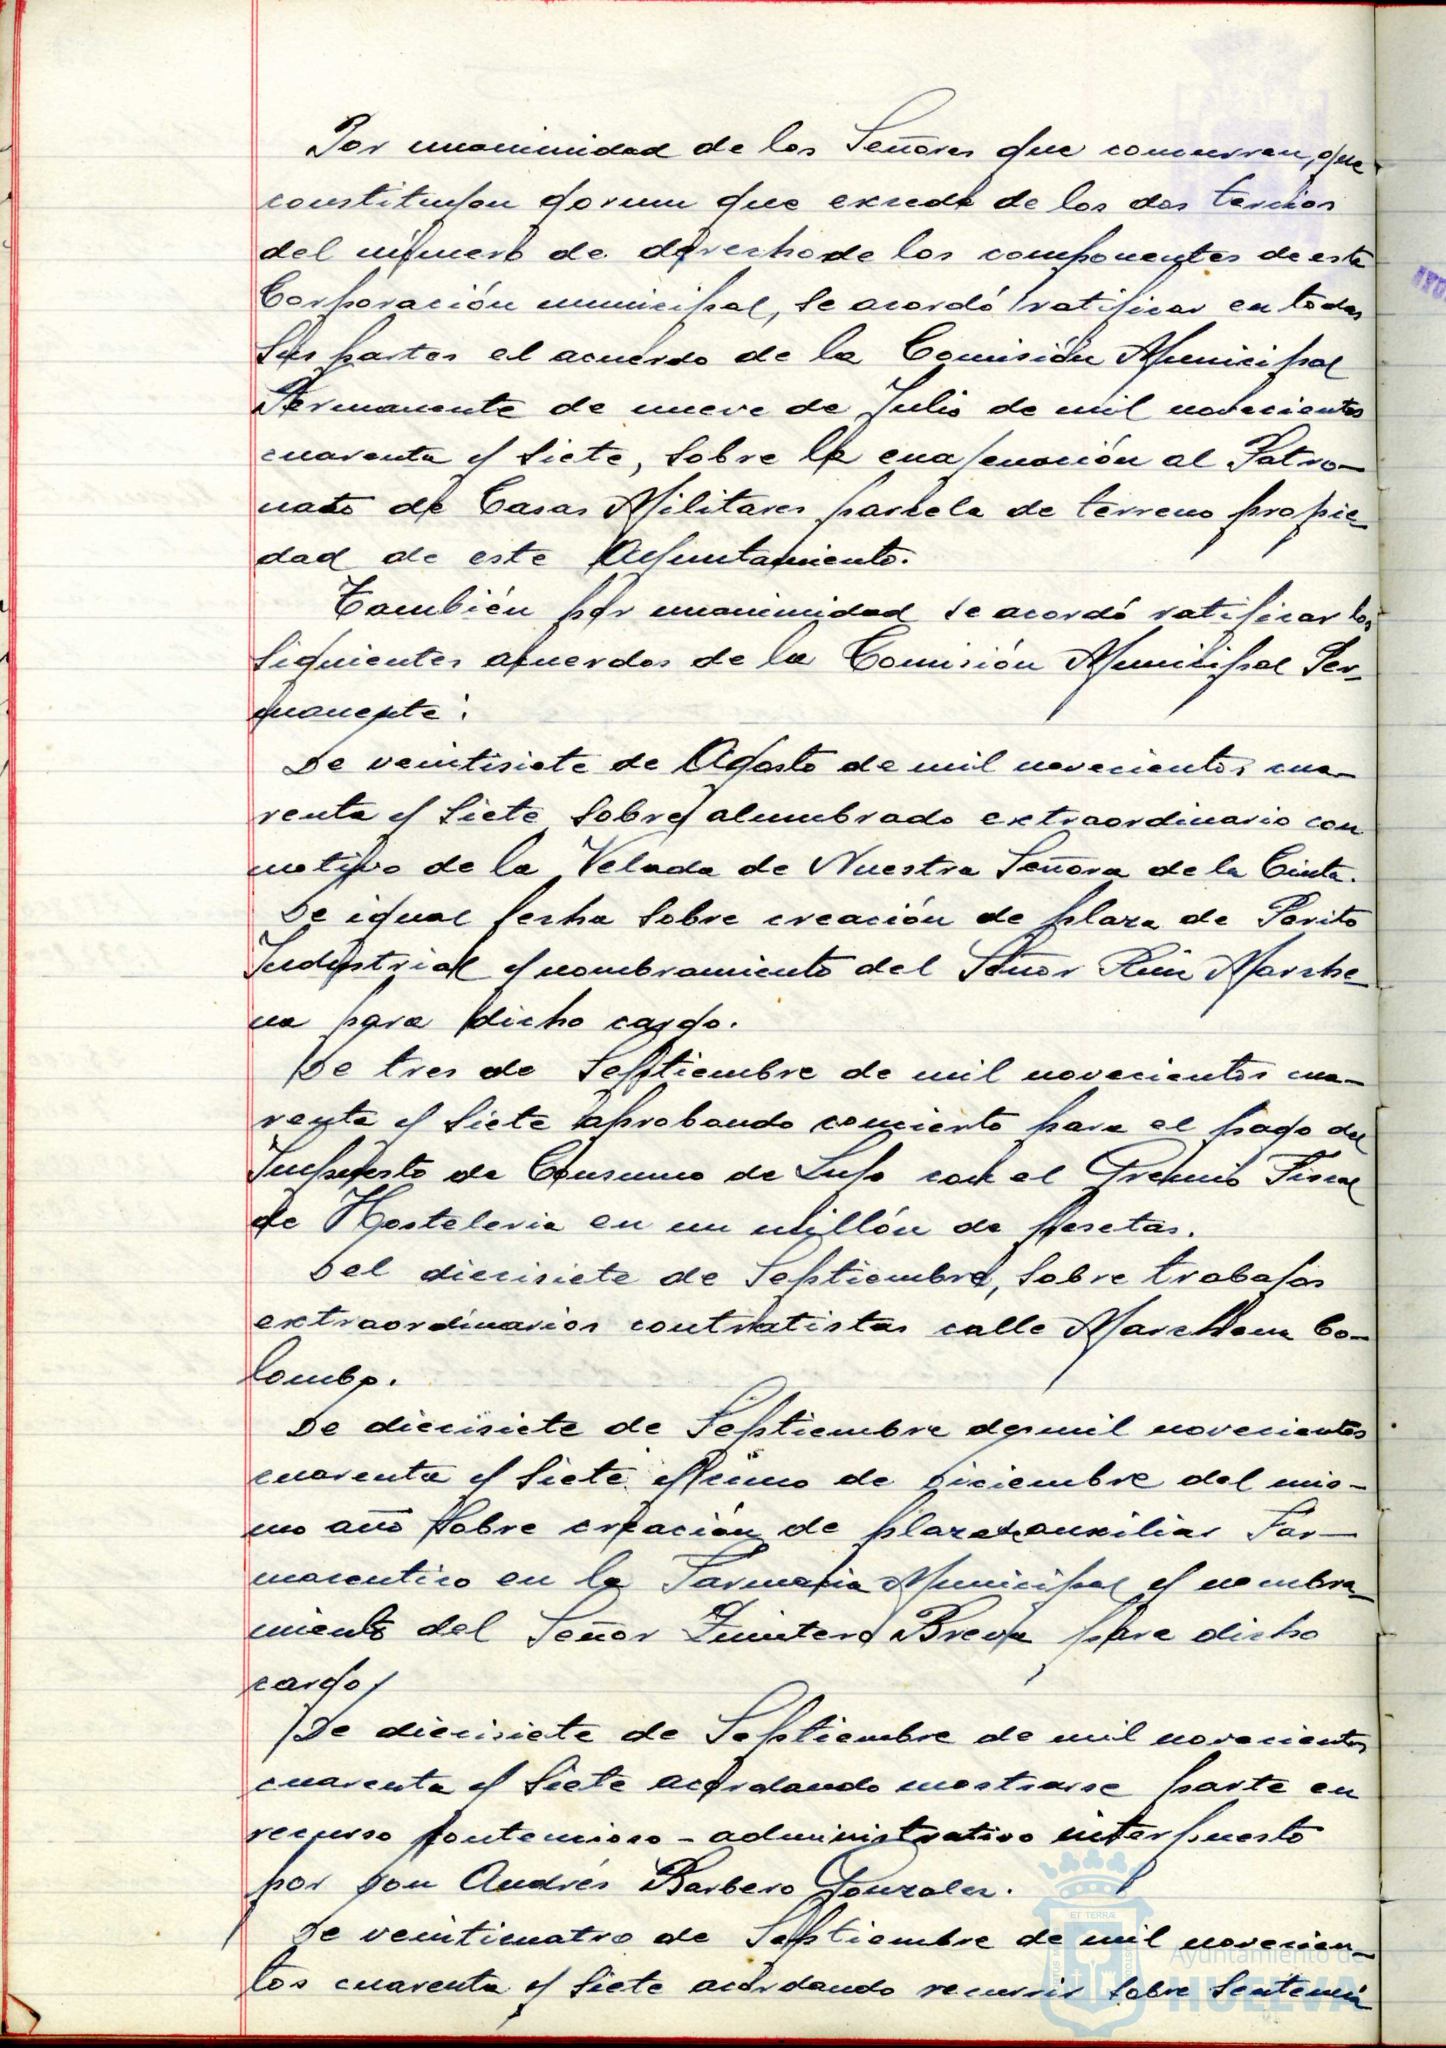 Por unanimidad de los Señores que concurren, que
constituyen qorum que excede de los dos tercios
del número de derecho de los componentes de esta
Corporación municipal, se acordó ratificar en todas
sus partes el acuerdo de la Comisión Municipal
Permanente de nueve de Julio de mil novecientos
cuarenta y siete, sobre la enajenación al Patro-
nato de Casas Militares parcela de terreno propie-
dad de este Ayuntamiento.
También por unanimidad se acordó ratificar los
siguientes acuerdos de la Comisión Municipal Per-
manente:
De veintisiete de Agosto de mil novecientos cua-
renta y siete sobre alumbrado extraordinario con
motivo de la Velada de Nuestra Señora de la Cinta.
De igual fecha sobre creación de plaza de Perito
Industrial y nombramiento del Señor Marche-
na para dicho cargo.
De tres de Septiembre de mil novecientos cua-
renta y siete aprobando concierto para el pago del
Impuesto de Consumo de Lujo con el Gremio Fiscal
de Hosteleria en un millón de pesetas.
Del diecisiete de Septiembre, sobre trabajos
extraordinarios contratistas calle Marchena Co-
lombo.
De diecisiete de Septiembre de mil novecientos
cuarenta y siete y de Diciembre del mis-
mo año sobre creación de plaza de auxiliar Far-
maceutico en la Farmacia Municipal y nombra-
miento del Señor Quintero Breva para dicho
cargo.
De diecisiete de Septiembre de mil novecientos
cuarenta y siete acordando mostrarse parte en
recurso contencioso-administrativo interpuesto
por Don Andrés Barbero Gonzalez.
De veinticuatro de Septiembre de mil novecien-
tos cuarenta y siete acordando recurrir sobre sentencia
ET TERRÆ
Ayuntamiento de
HUELVA